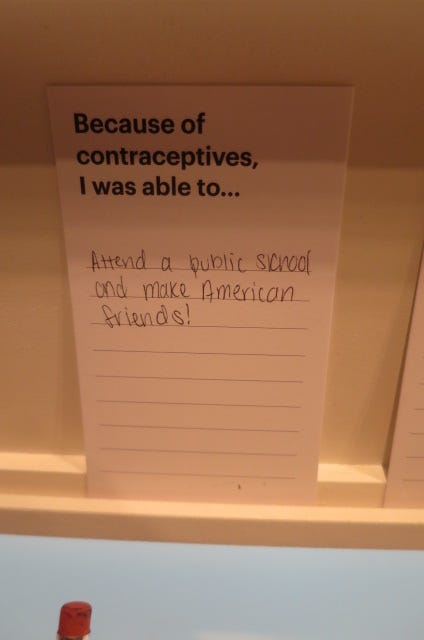 Because of
contraceptives,
I was able to...
Attend a public school
and make American
friends!